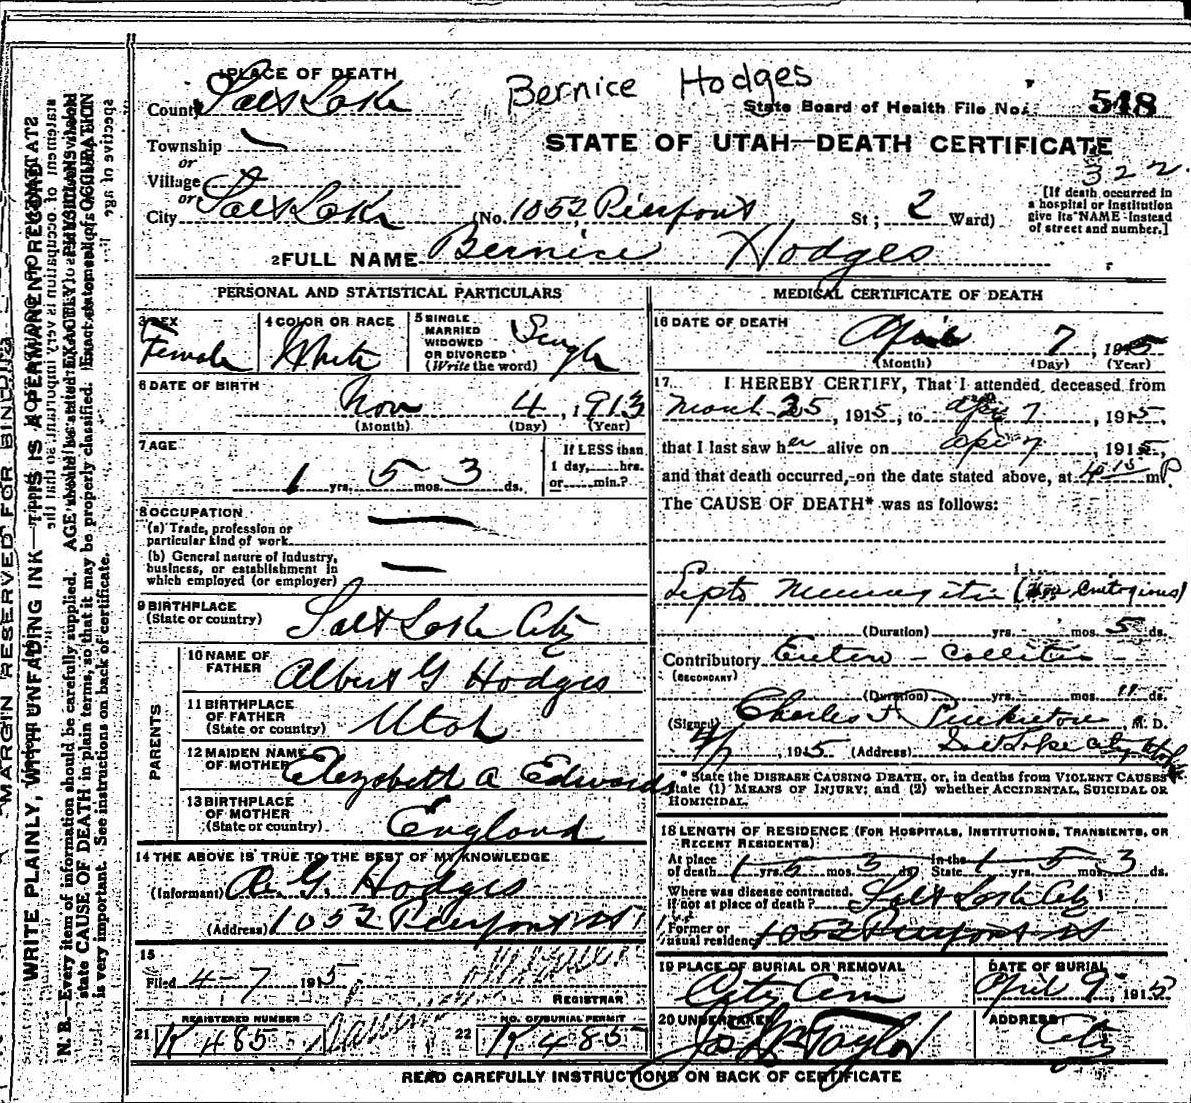 1 PLACE OF DEATH
County Salt Lake
Bernice Hodges
State Board of Health File No. 548
Township —
or
Village
or
City Salt Lake
STATE OF UTAH—DEATH CERTIFICATE
322
(No. 1052 Pierpont St; 2 Ward)
[If death occurred in
a hospital or institution
give its NAME instead
of street and number.]
2 FULL NAME Bernice Hodges
PERSONAL AND STATISTICAL PARTICULARS
3 SEX
Female
4 COLOR OR RACE
White
5 SINGLE
MARRIED
WIDOWED
OR DIVORCED
(Write the word)
Single
6 DATE OF BIRTH
Nov 4, 1913
(Month) (Day) (Year)
7 AGE
1 yrs. 5 mos. 3 ds.
If LESS than
1 day, hrs.
or min.?
8 OCCUPATION
(a) Trade, profession or
particular kind of work —
(b) General nature of industry,
business, or establishment in
which employed (or employer) —
9 BIRTHPLACE
(State or country) Salt Lake City
PARENTS
10 NAME OF
FATHER Albert G Hodges
11 BIRTHPLACE
OF FATHER
(State or country) Utah
12 MAIDEN NAME
OF MOTHER Elizabeth A Edwards
13 BIRTHPLACE
OF MOTHER
(State or country) England
14 THE ABOVE IS TRUE TO THE BEST OF MY KNOWLEDGE
(Informant) A. G. Hodges
(Address) 1052 Pierpont St
15
Filed 4-7 1915
REGISTRAR
21 REGISTERED NUMBER
K 485
22 NO. OF BURIAL PERMIT
K 485
MEDICAL CERTIFICATE OF DEATH
16 DATE OF DEATH
April 7, 1915
(Month) (Day) (Year)
17 I HEREBY CERTIFY, That I attended deceased from
March 25, 1915, to Apr 7, 1915,
that I last saw her alive on Apr 7 1915,
and that death occurred, on the date stated above, at 4 15 P m.
The CAUSE OF DEATH* was as follows:
(Duration) yrs. mos. 5 ds.
Contributory Entero-Collitis
(SECONDARY)
(Duration) yrs. mos. 11 ds.
(Signed) Charles F. M. D.
4/7, 1915 (Address) Salt Lake City Utah
* State the DISEASE CAUSING DEATH, or, in deaths from VIOLENT CAUSES
state (1) MEANS OF INJURY; and (2) whether ACCIDENTAL, SUICIDAL OR
HOMICIDAL.
18 LENGTH OF RESIDENCE (FOR HOSPITALS, INSTITUTIONS, TRANSIENTS, OR
RECENT RESIDENTS)
At place
of death 1 yrs. 5 mos. 3 ds. In the
State 1 yrs. 5 mos. 3 ds.
Where was disease contracted,
if not at place of death? Salt Lake City
Former or
usual residence 1052 Pierpont St
19 PLACE OF BURIAL OR REMOVAL
City Cem
DATE OF BURIAL
April 9, 1915
20 UNDERTAKER
Jos Wm Taylor
ADDRESS
City
READ CAREFULLY INSTRUCTIONS ON BACK OF CERTIFICATE
MARGIN RESERVED FOR BINDING
WRITE PLAINLY, WITH UNFADING INK—THIS IS A PERMANENT RECORD
N. B.—Every item of information should be carefully supplied. AGE should be stated EXACTLY. PHYSICIANS should
state CAUSE OF DEATH in plain terms, so that it may be properly classified. Exact statement of OCCUPATION
is very important. See instructions on back of certificate.